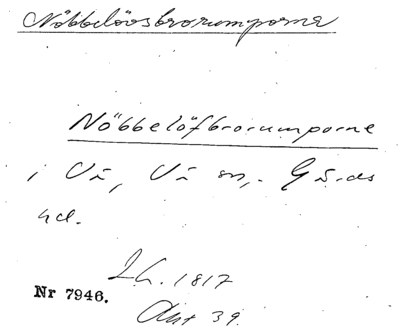 Nöbbelövsbrorumporne
Nöbbelöfbrorumporne
i Vä, Vä sn, Gärds
hd.
Lh. 1817
Nr 7946.
Akt 39.